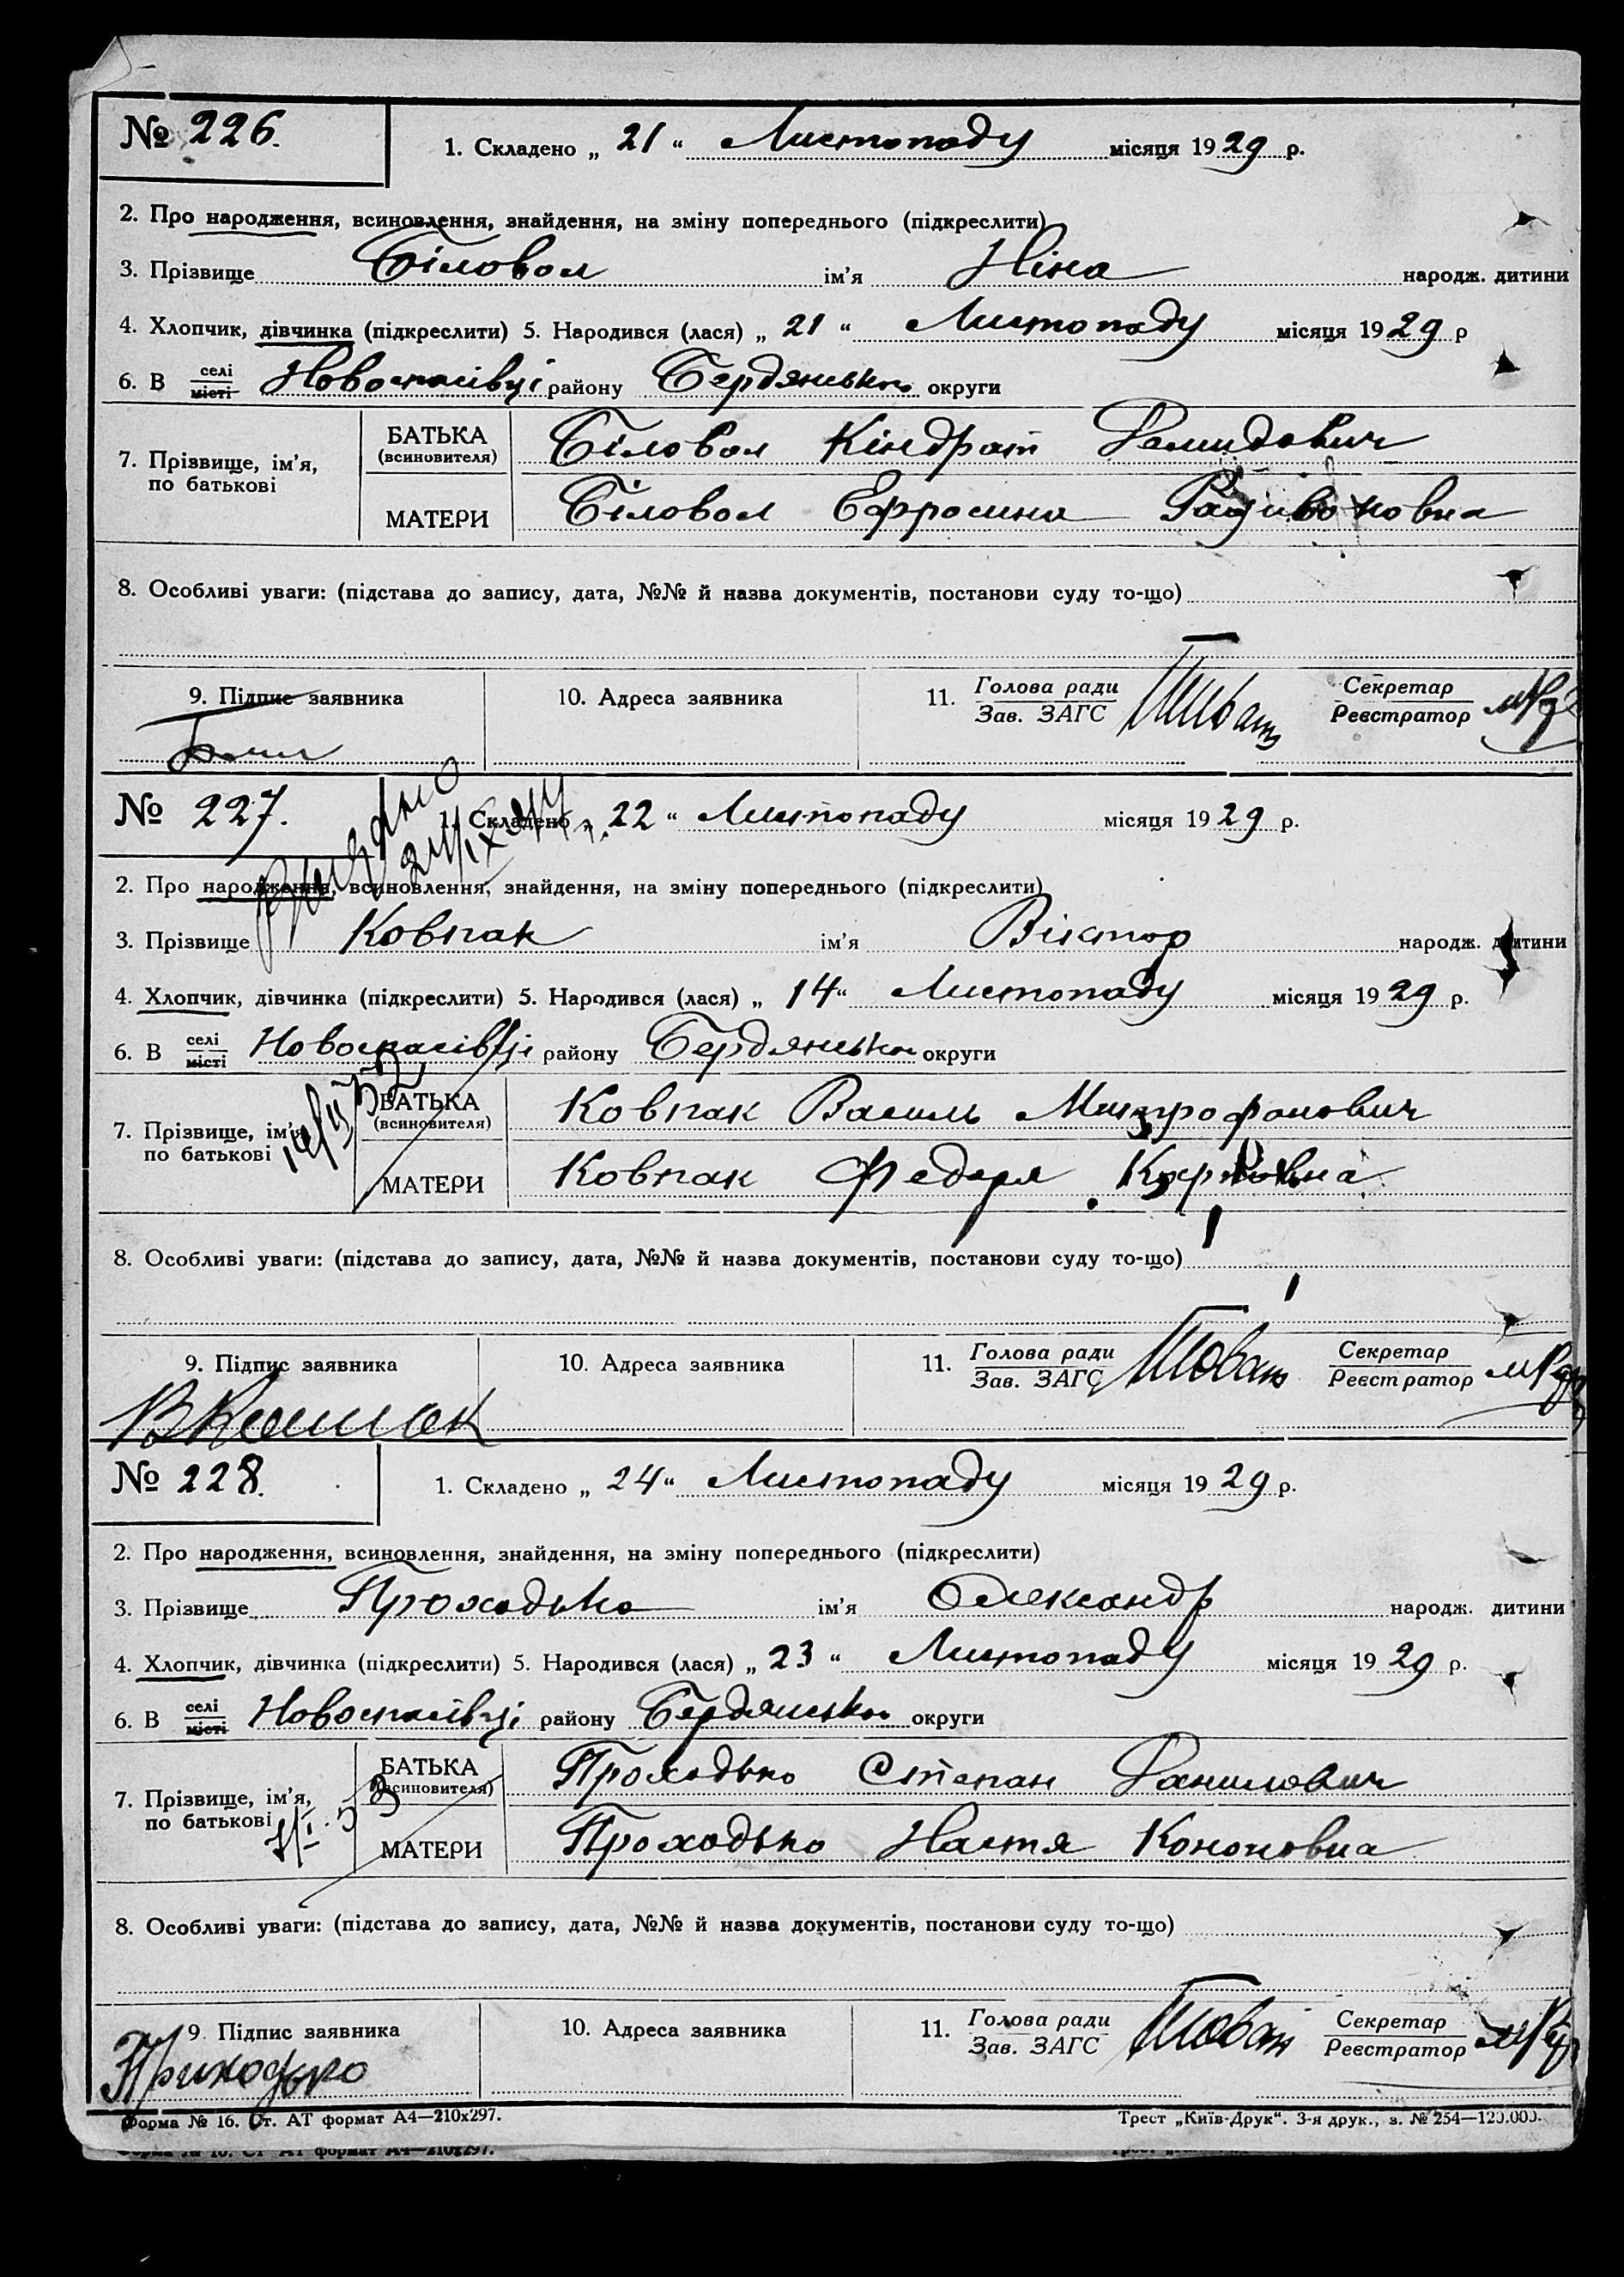 № 226.
1. Складено „ 21 “ Листопаду місяця 1929 р.
2. Про народження, всиновлення, знайдення, на зміну попереднього (підкреслити)
3. Прізвище Біловол ім'я Ніна народж. дитини
4. Хлопчик, дівчинка (підкреслити) 5. Народився (лася) „ 21 “ Листопаду місяця 1929 р
6. В селі місті Новоспасівці району Бердянсько округи
7. Прізвище, ім'я, по батькові
БАТЬКА (всиновителя) Біловол Кіндрат Демидович
МАТЕРИ Біловол Ефросина
8. Особливі уваги: (підстава до запису, дата, №№ й назва документів, постанови суду то-що)
9. Підпис заявника 10. Адреса заявника 11. Голова ради Зав. ЗАГС Секретар Реєстратор
№ 227.
1. Складено „ 22 “ Листопаду місяця 1929 р.
2. Про народження, всиновлення, знайдення, на зміну попереднього (підкреслити)
3. Прізвище Ковпак ім'я Віктор народж. дитини
4. Хлопчик, дівчинка (підкреслити) 5. Народився (лася) „ 14 “ Листопаду місяця 1929 р.
6. В селі місті Новоспасівці району Бердянсько округи
7. Прізвище, ім'я, по батькові
БАТЬКА (всиновителя) Ковпак Василь Митрофанович
МАТЕРИ Ковпак Федора Карповна
8. Особливі уваги: (підстава до запису, дата, №№ й назва документів, постанови суду то-що)
9. Підпис заявника 10. Адреса заявника 11. Голова ради Зав. ЗАГС Секретар Реєстратор
№ 228.
1. Складено „ 24 “ Листопаду місяця 1929 р.
2. Про народження, всиновлення, знайдення, на зміну попереднього (підкреслити)
3. Прізвище Проходько ім'я Олександр народж. дитини
4. Хлопчик, дівчинка (підкреслити) 5. Народився (лася) „ 23 “ Листопаду місяця 1929 р.
6. В селі місті Новоспасівці району Бердянсько округи
7. Прізвище, ім'я, по батькові
БАТЬКА (всиновителя) Проходько Степан Данилович
МАТЕРИ Проходько Настя Кононовна
8. Особливі уваги: (підстава до запису, дата, №№ й назва документів, постанови суду то-що)
9. Підпис заявника 10. Адреса заявника 11. Голова ради Зав. ЗАГС Секретар Реєстратор
Приходько
Форма № 16. Ст. АТ формат А4—210х297. Трест „Київ-Друк“. 3-я друк., з. № 254—120.000.